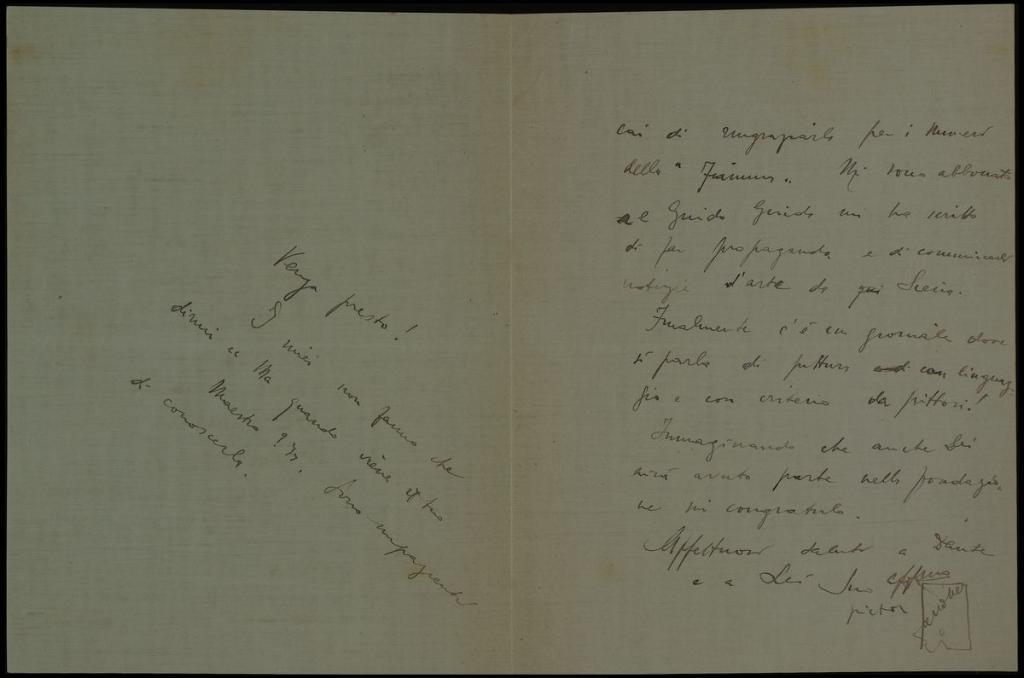 Venga presto!
I miei non fanno che
dirmi "Ma quando viene il tuo
Maestro?".
Sono impazienti
di conoscerla.
cai di ringraziarlo per i numeri
della "Fiamma". Mi sono abbonato
e Guido Guida mi ha scritto
di far propaganda e di comunicare
notizie d'arte da qui Lecce.
Finalmente c'è un giornale dove
si parla di pittura con linguag-
gio e con criterio da pittori!
Immaginando che anche Lei
avrà avuto parte nella fondazio-
ne mi congratulo.
Affettuosi saluti a Dante
e a Lei Suo
pittor